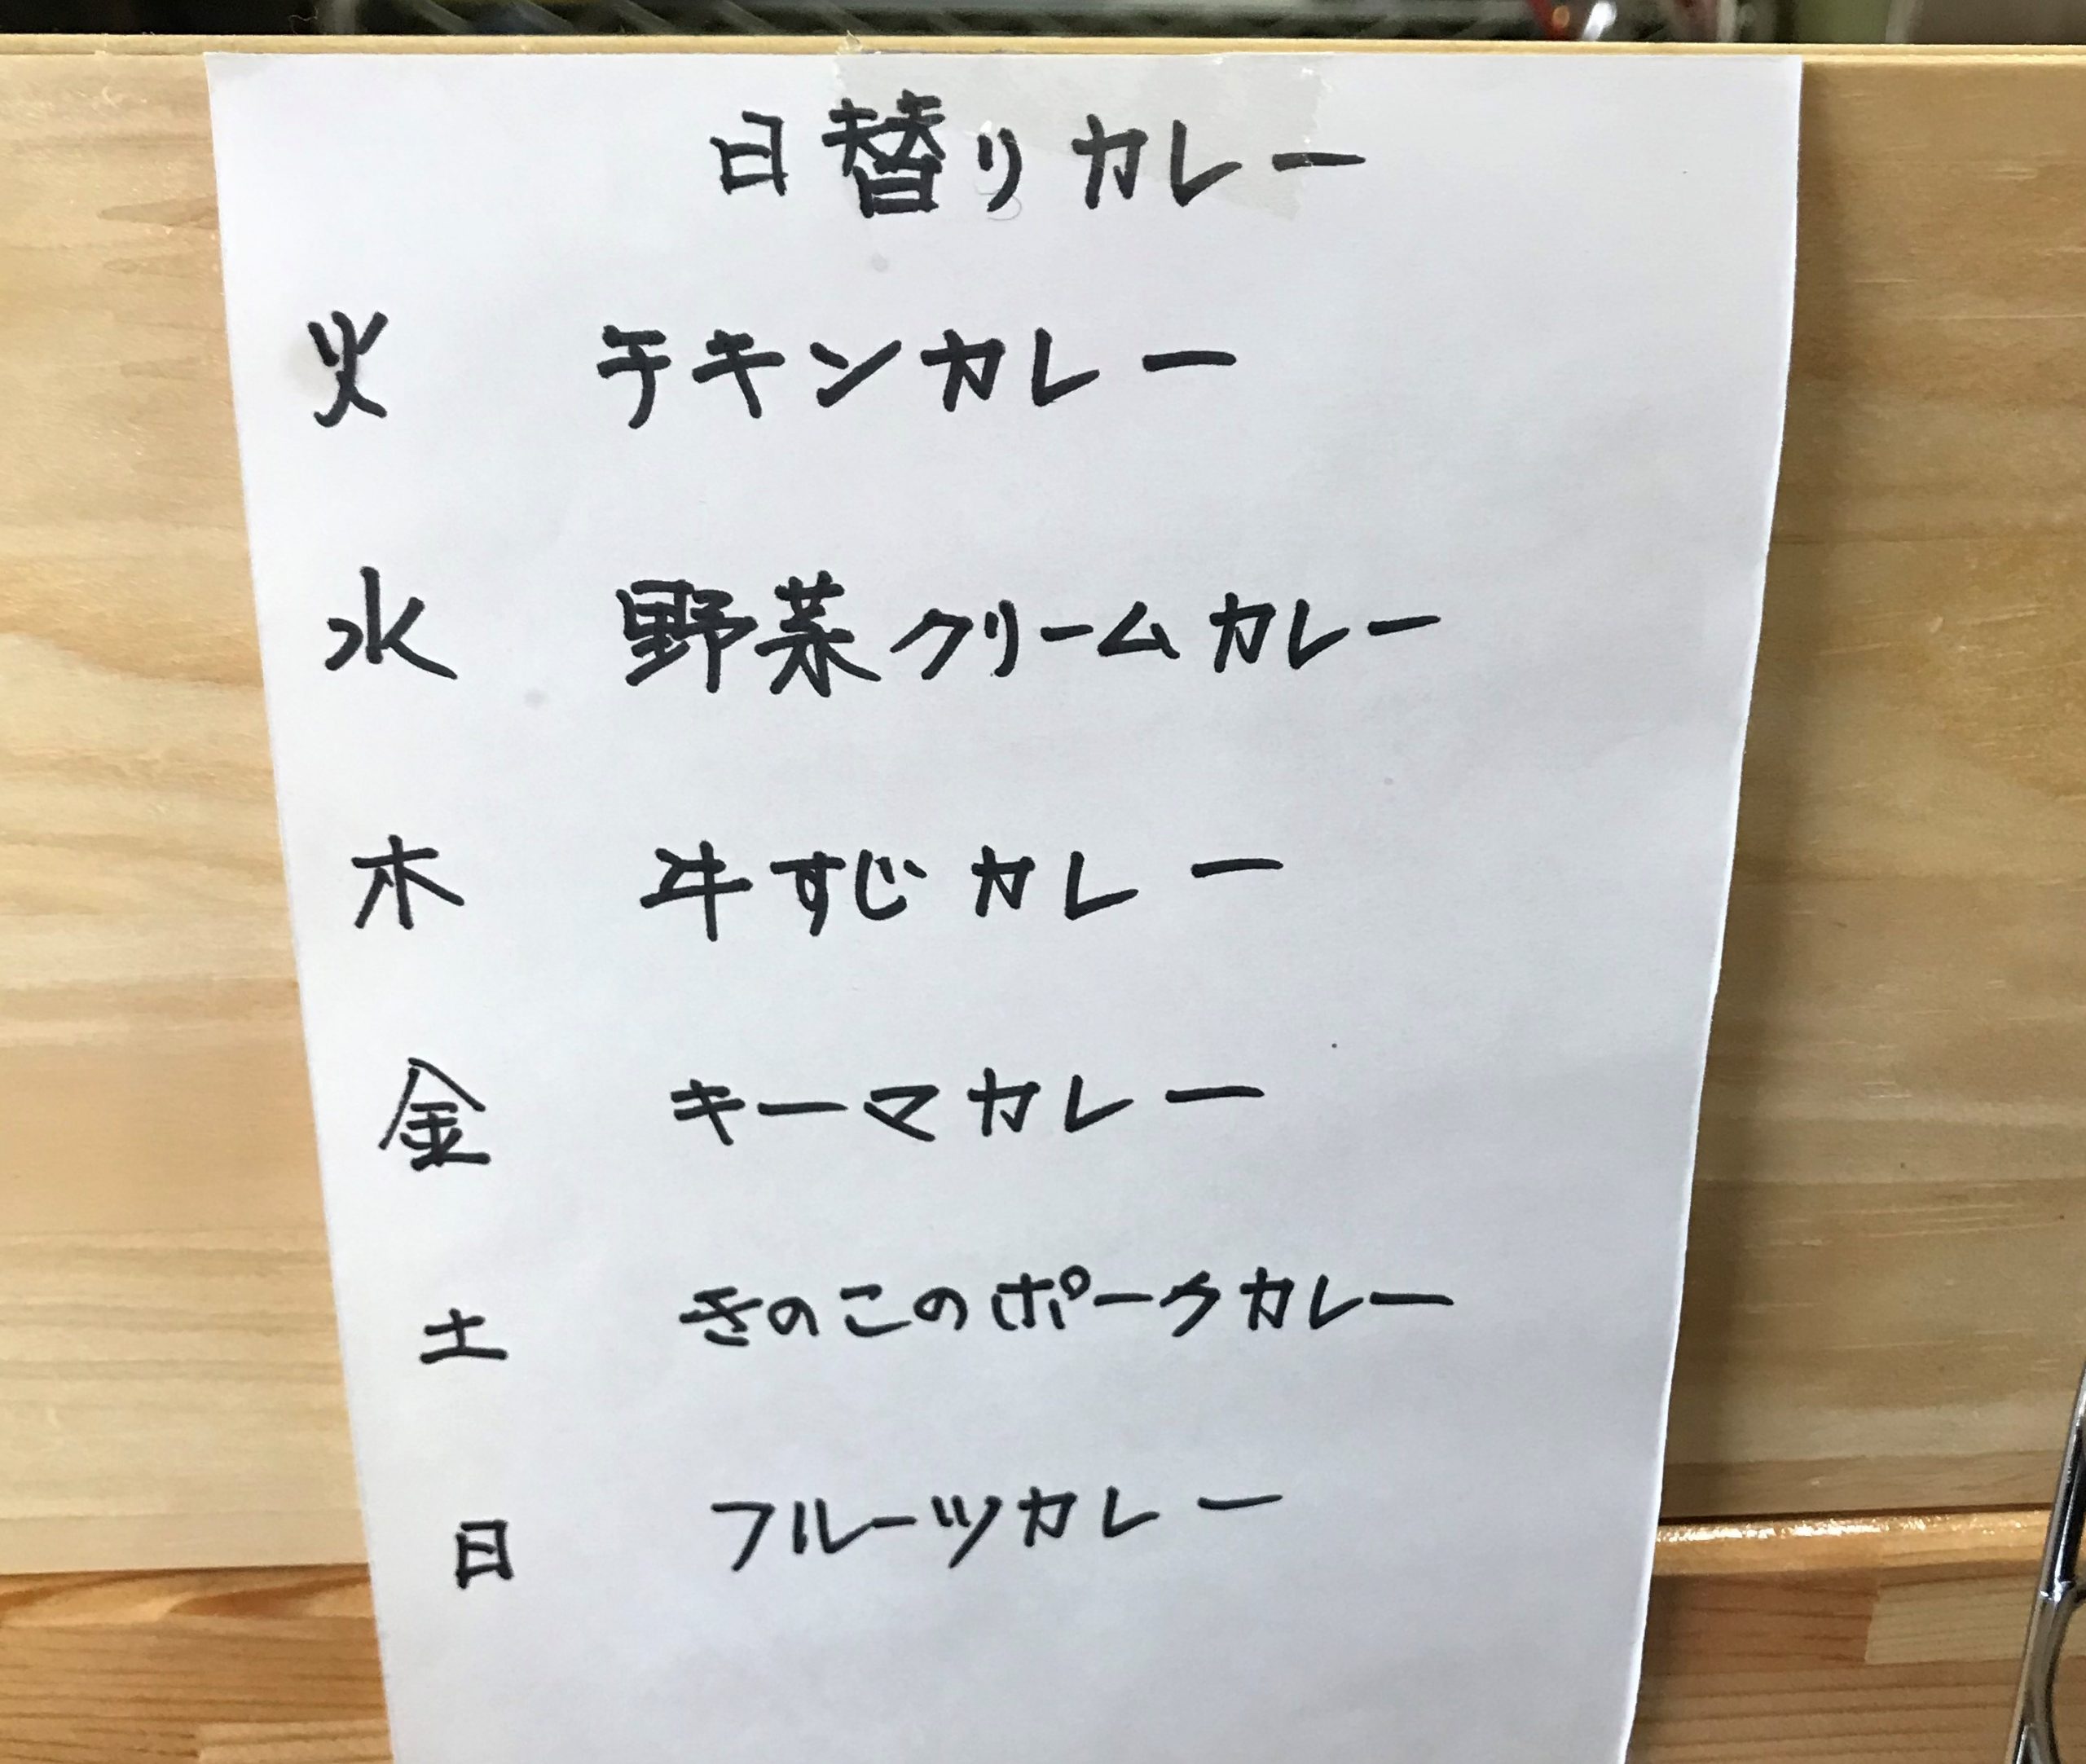 日替りカレー
火 チキンカレー
水 野菜クリームカレー
木 牛すじカレー
金 キーマカレー
土 きのこのポークカレー
日 フルーツカレー